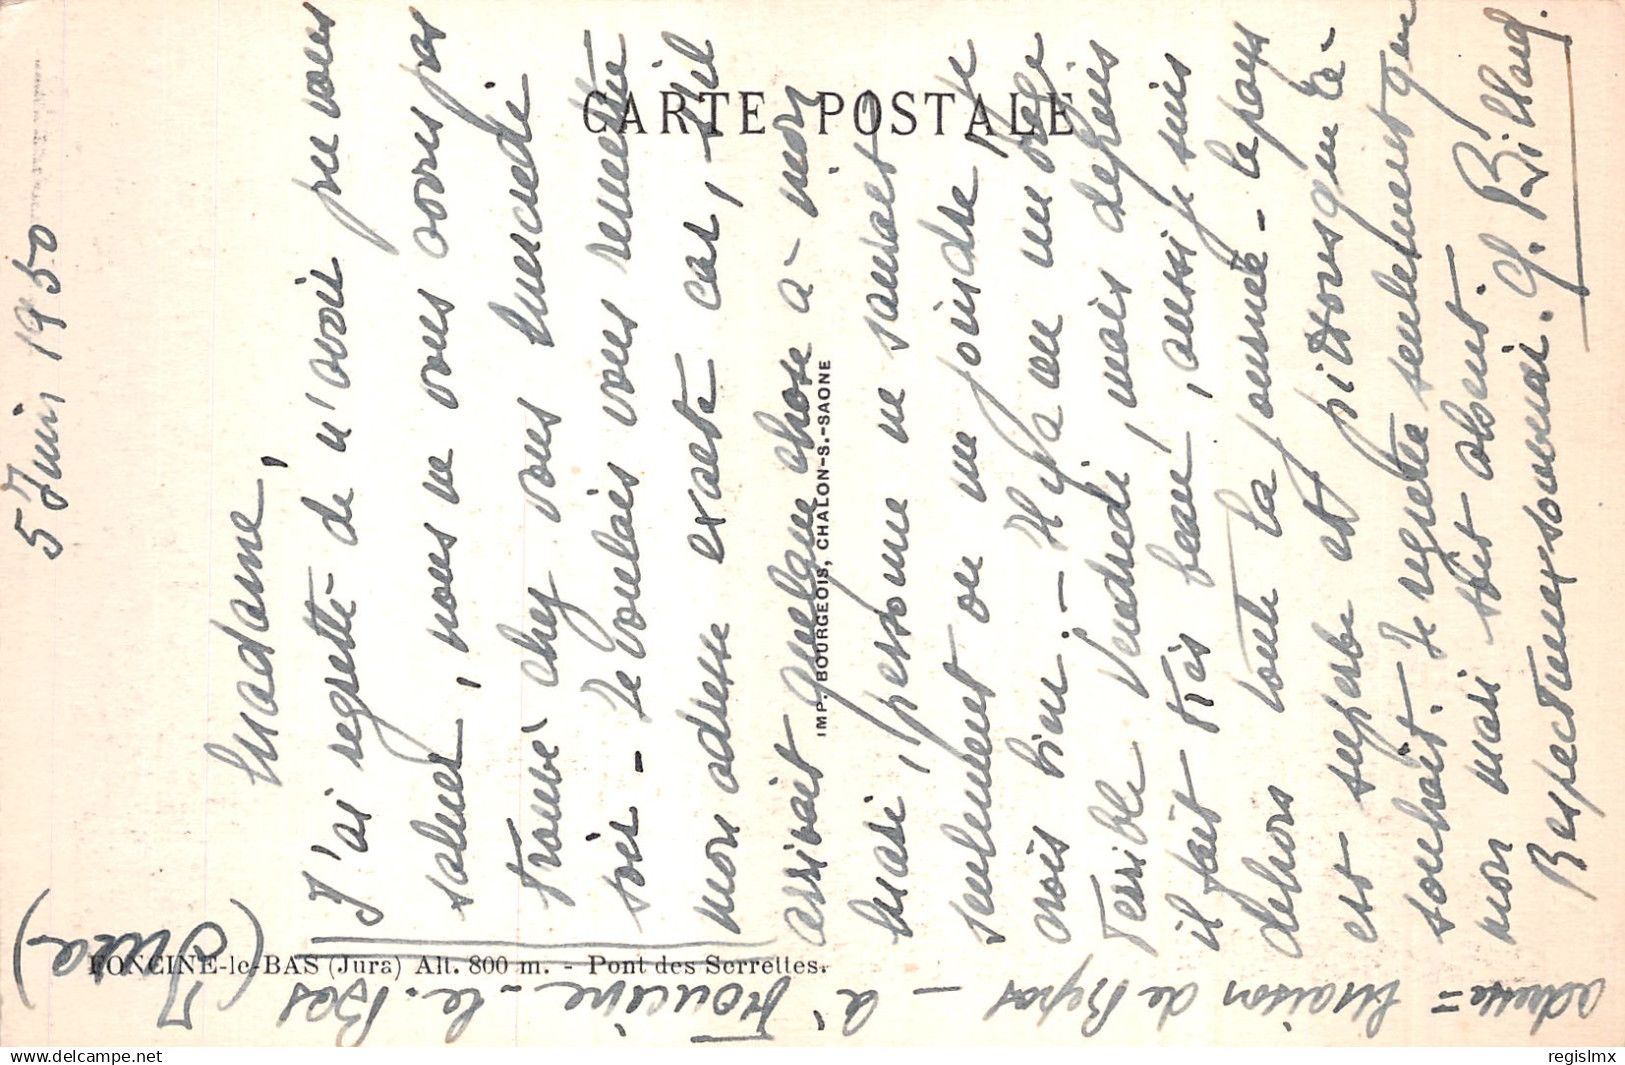 5 Juin 1950
Madame,
J'ai regretté de n'avoir pu vous
saluer, nous ne vous avons pas
trouvé chez vous mercredi
soir - Je voulais vous remettre
mon adresse exacte car, s'il
arrivait quelque chose à mon
mari, personne ne saurait
seulement où me joindre je
crois bien. - Il y a eu un orage
terrible Vendredi, mais depuis
il fait très beau, aussi je suis
dehors toute la journée - le pays
est superbe et pittoresque à
souhait. Je regrette seulement que
mon mari soit absent.
Respectueux souvenir. Ch. Billard.
adresse = Maison de Repos - à Foncine-le-Bas
(Jura)
CARTE POSTALE
IMP. BOURGEOIS, CHALON-S.-SAONE
FONCINE-le-BAS (Jura) Alt. 800 m. - Pont des Serrettes.
regislmx